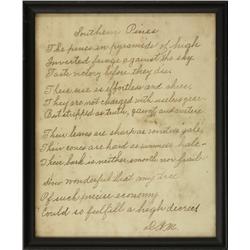 Southern Pines
The pines in pyramids of high
Inverted fringe against the sky
Taste victory before they die
Their rise is effortless and sheer
They are not charged with useless gear
But stripped as truth, gaunt and austere
Their leaves are sharp as winter's gale
Their cones are hard as summer's hale
Their bark is neither smooth nor frail
How wonderful that my tree
Of such precise economy
Could so fulfill a high decree!